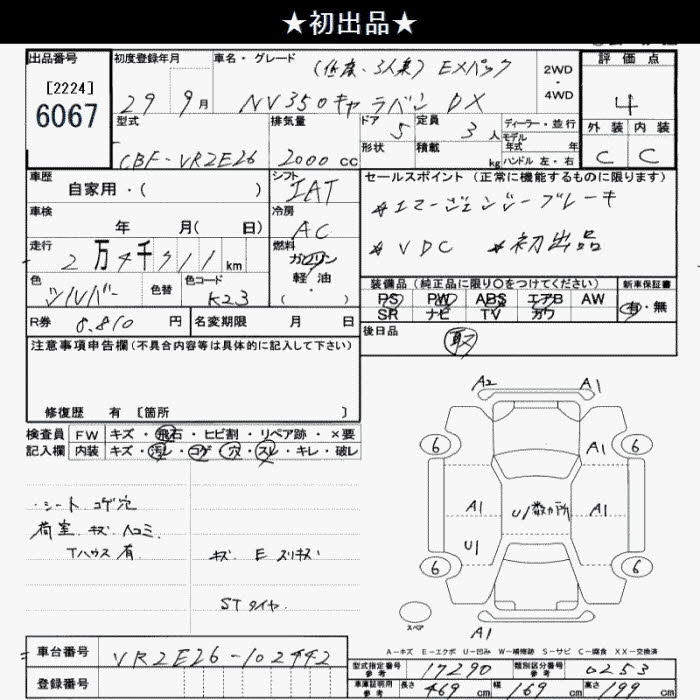 ★初出品★
出品番号
[2224]
6067
初度登録年月
29 9月
車名・グレード
(低床、3人乗) EXパック
NV350キャラバン DX
2WD・4WD
評価点
4
外装 内装
C C
型式
CBF-VR2E26
排気量
2000cc
ドア 5
定員 3人
形状
積載 kg
ディーラー・並行
モデル年式 年
ハンドル 左・右
車歴
自家用・( )
シフト
IAT
車検
年 月( 日)
冷房
AC
走行
2万4千 km
燃料
ガソリン
軽油
・( )
色
シルバー
色替
色コード
K23
R券 8.810 円
名変期限 月 日
セールスポイント (正常に機能するものに限ります)
*エマージェンシーブレーキ
*VDC *初出品
装備品 (純正品に限り〇をつけてください)
新車保証書
PS PW ABS エアB AW
SR ナビ TV カワ
有・無
後日品
取
注意事項申告欄 (不具合内容等は具体的に記入して下さい)
修復歴 有 [箇所 ]
検査員記入欄
FW キズ・飛石・ヒビ割・リペア跡・×要
内装 キズ・汚レ・コゲ・穴・スレ・キレ・破レ
・シート コゲ穴
荷室 キズ ヘコミ
Tハウス 有
キズ E スリキズ
STタイヤ
A2 A1
6 A1 6
A1 U1数カ所 A1
U1
6 6
A1
スペア
A-キズ E-エクボ U-凹み W-補修跡 S-サビ C-腐食 XX-交換済
車台番号 VR2E26-102442
登録番号
型式指定番号 参考 17290
類別区分番号 参考 0253
車庫証明用 参考 長さ 469cm 幅 169cm 高さ 199cm